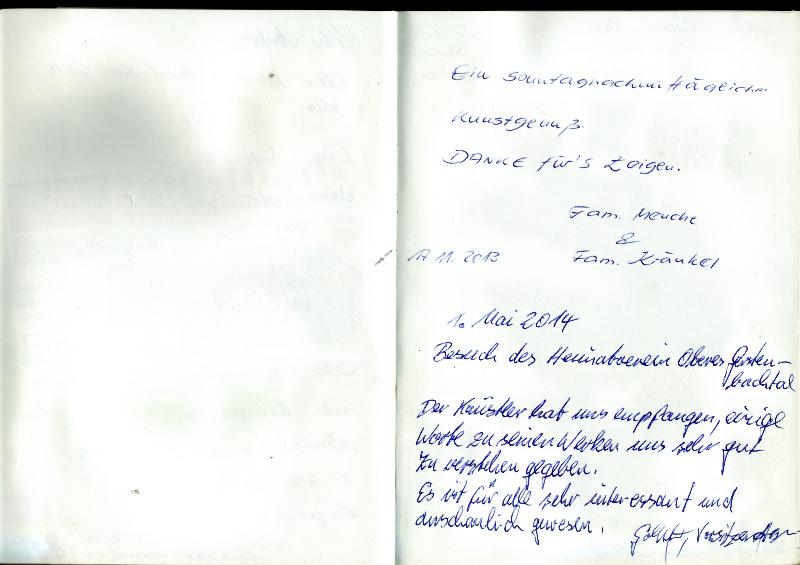 Ein Sonntagnachmittäglicher
Kunstgenuß.
DANKE für's Zeigen.
Fam. Menche
&
17.11.2013 Fam. Kränkel
1. Mai 2014
Besuch des Heimatverein Oberes Gersten-
bachtal
Der Künstler hat uns empfangen, einige
Worte zu seinen Werken uns sehr gut
zu verstehen gegeben.
Es ist für alle sehr interessant und
anschaulich gewesen.